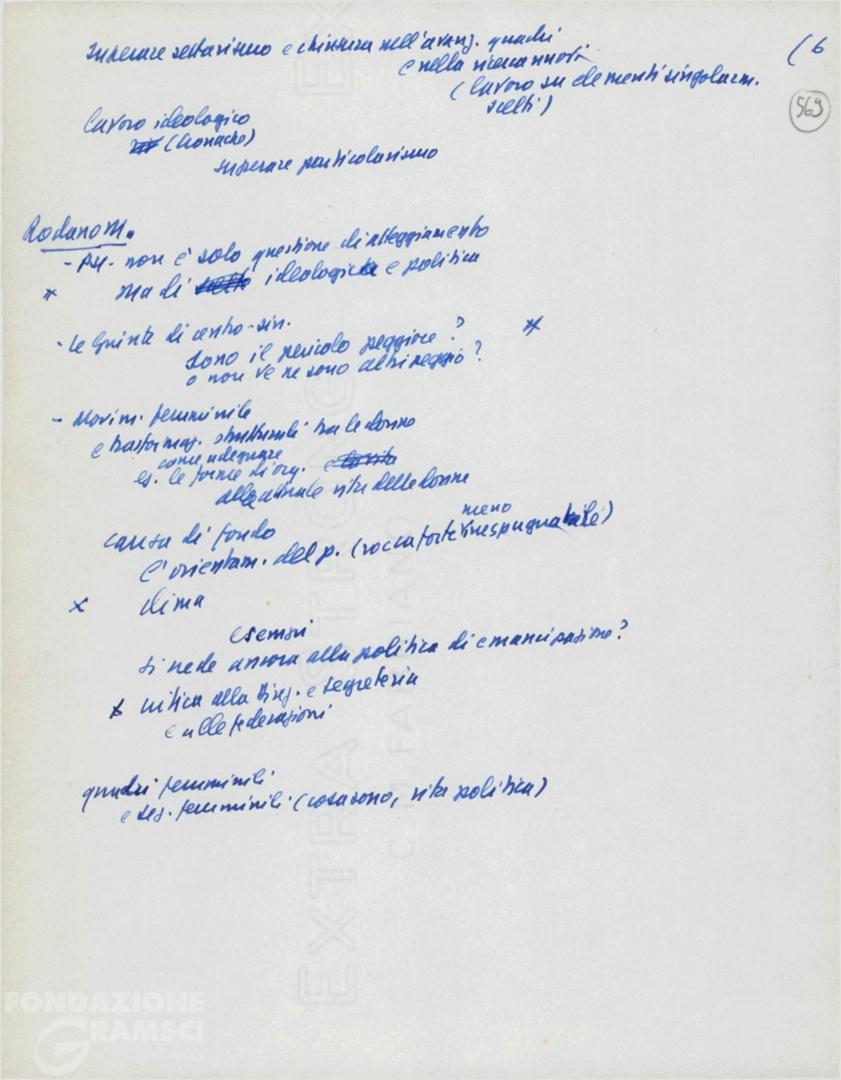 superare settarismo e chiusura nell'avanz. quadri
e nella ricerca nuovi
(lavoro su elementi singolarm.
scelti)
(6
569
lavoro ideologico
(Cronache)
superare particolarismo
Rodano M.
- Att. non è solo questione di atteggiamento
* ma di ideologica e politica
- le Giunte di centro-sin.
sono il pericolo peggiore? *
o non ve ne sono altri peggio?
- Movim. femminile
e trasformaz. strutturali tra le donne
come adeguare
es. le forme di org.
alla attuale vita delle donne
causa di fondo
meno
è orientam. del p. (roccaforte inespugnabile)
x clima
esempi
si crede ancora alla politica di emancipazione?
x critica alla Direz. e segreteria
e alle federazioni
quadri femminili
e sez. femminili (cosa sono, vita politica)
EXTRA STRONG
C.M. FABRIANO
FONDAZIONE
GRAMSCI